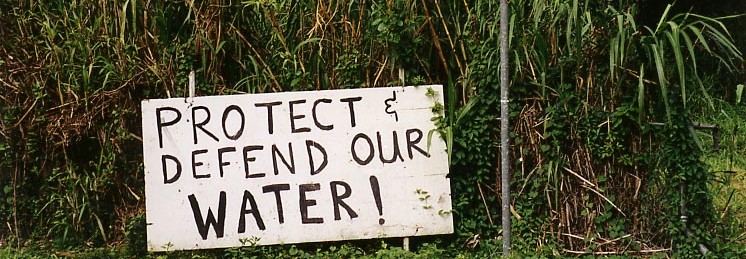 PROTECT &
DEFEND OUR
WATER!